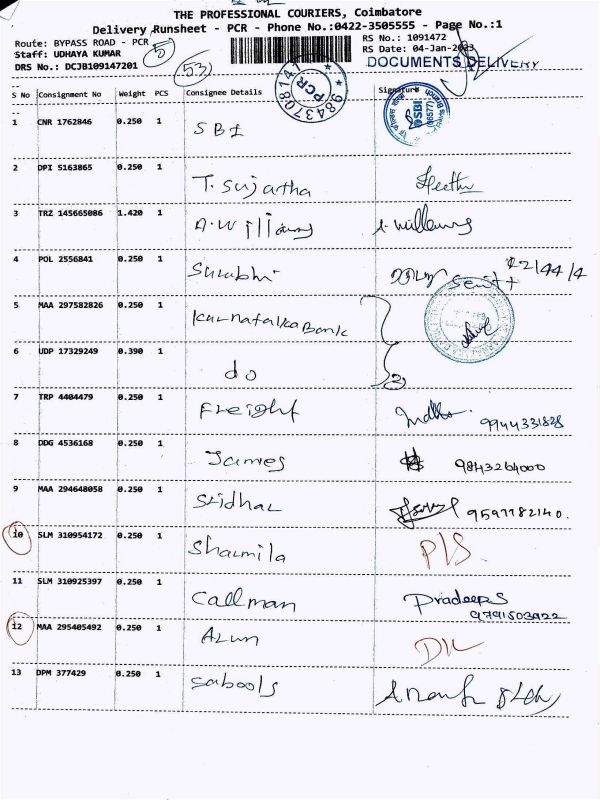 THE PROFESSIONAL COURIERS, Coimbatore
Delivery Runsheet - PCR - Phone No.:0422-3505555 - Page No.:1
Route: BYPASS ROAD - PCR
Staff: UDHAYA KUMAR
DRS No.: DCJB109147201
RS No.: 1091472
RS Date: 04-Jan-2023
DOCUMENTS DELIVERY
5
53
PCR
9843708147
S No Consignment No Weight PCS Consignee Details Signature
1 CNR 1762846 0.250 1 SBI
SBI
2 DPI 5163865 0.250 1 T. Sujatha
3 TRZ 145665086 1.420 1 A. Williams A. Williams
4 POL 2556841 0.250 1 Surabhi
5 MAA 297582826 0.250 1 Karnataka Bank
6 UDP 17329249 0.390 1 do 2
7 TRP 4404479 0.250 1 Freight 9944331828
8 DDG 4536168 0.250 1 James 9843264000
9 MAA 294648058 0.250 1 Sridhar 9597782140.
10 SLM 310954172 0.250 1 Sharmila P/S.
11 SLM 310925397 0.250 1 Callman Pradeep S
9791503922
12 MAA 295405492 0.250 1 Arun DL
13 DPM 377429 0.250 1 Sabools